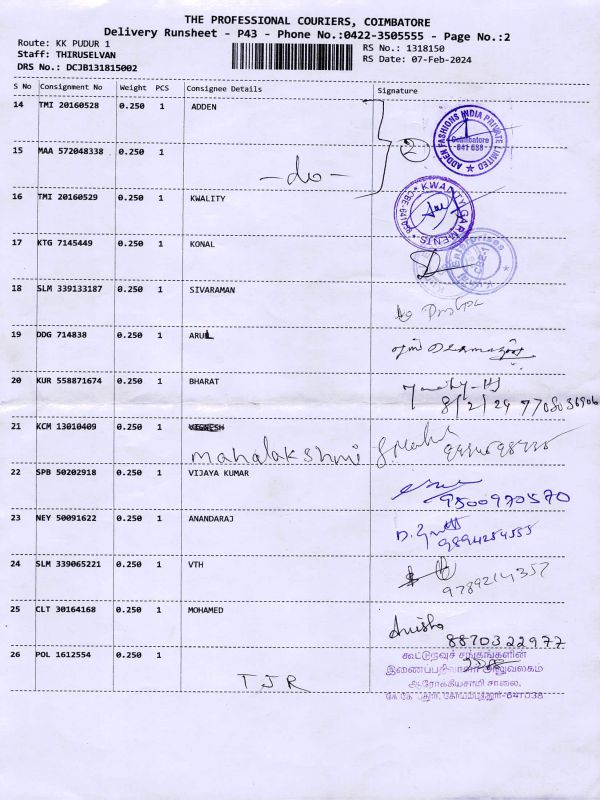 THE PROFESSIONAL COURIERS, COIMBATORE
Delivery Runsheet - P43 - Phone No.:0422-3505555 - Page No.:2
Route: KK PUDUR 1
Staff: THIRUSELVAN
DRS No.: DCJB131815002
RS No.: 1318150
RS Date: 07-Feb-2024
S No Consignment No Weight PCS Consignee Details Signature
14 TMI 20160528 0.250 1 ADDEN
ADDEN FASHIONS INDIA PRIVATE LIMITED
Coimbatore
641 038
2
15 MAA 572048338 0.250 1
-do-
16 TMI 20160529 0.250 1 KWALITY
KWALITY GARMENTS
17 KTG 7145449 0.250 1 KONAL
18 SLM 339133187 0.250 1 SIVARAMAN
19 DDG 714838 0.250 1 ARUL
20 KUR 558871674 0.250 1 BHARAT
8/2/24 7708036906
21 KCM 13010409 0.250 1 VIGNESH
mahalakshmi
22 SPB 50202918 0.250 1 VIJAYA KUMAR
9500970570
23 NEY 50091622 0.250 1 ANANDARAJ
9894254555
24 SLM 339065221 0.250 1 VTH
9789214357
25 CLT 30164168 0.250 1 MOHAMED
Anisha
8870322977
26 POL 1612554 0.250 1
TJR
கூட்டுறவுச் சங்கங்களின்
இணைப்பதிவாளர் அலுவலகம்
ஆரோக்கியசாமி சாலை,
கே.கே.புதூர், கோயம்புத்தூர்-641038